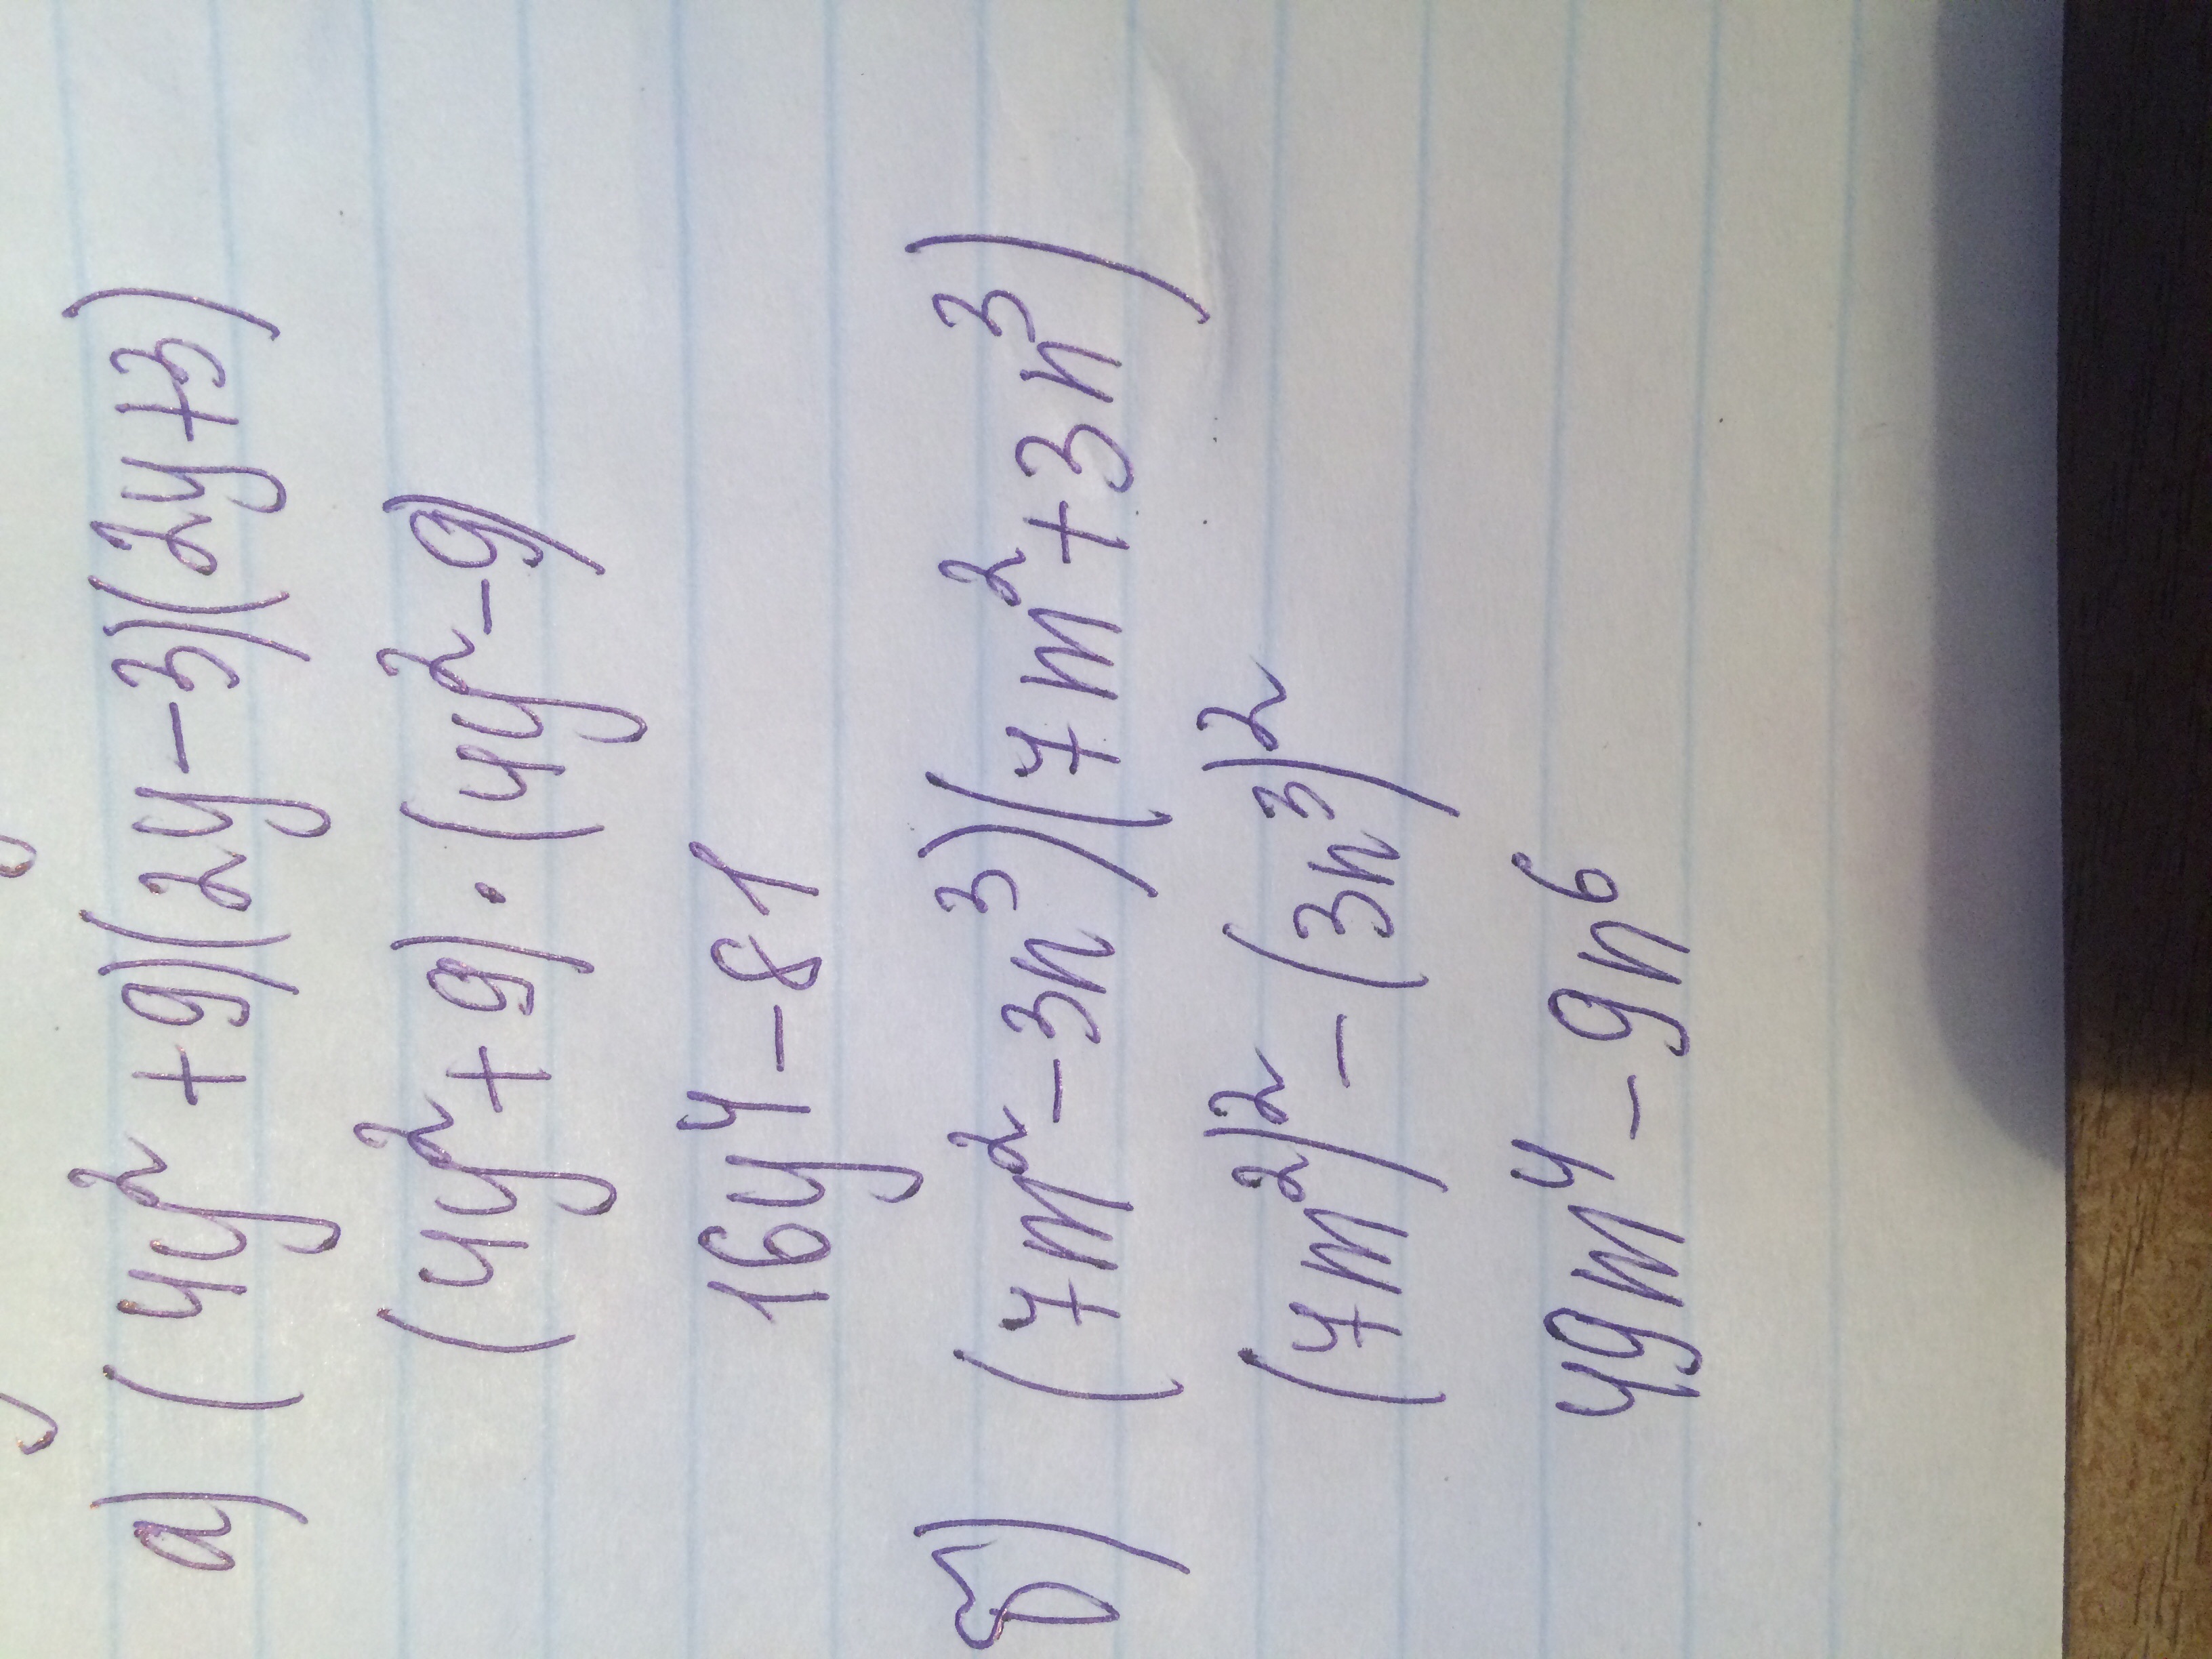 а) (4y² + 9)(2y – 3)(2y + 3)
(4y² + 9) · (4y² – 9)
16y⁴ – 81
б) (7m² – 3n³)(7m² + 3n³)
(7m²)² – (3n³)²
49m⁴ – 9n⁶